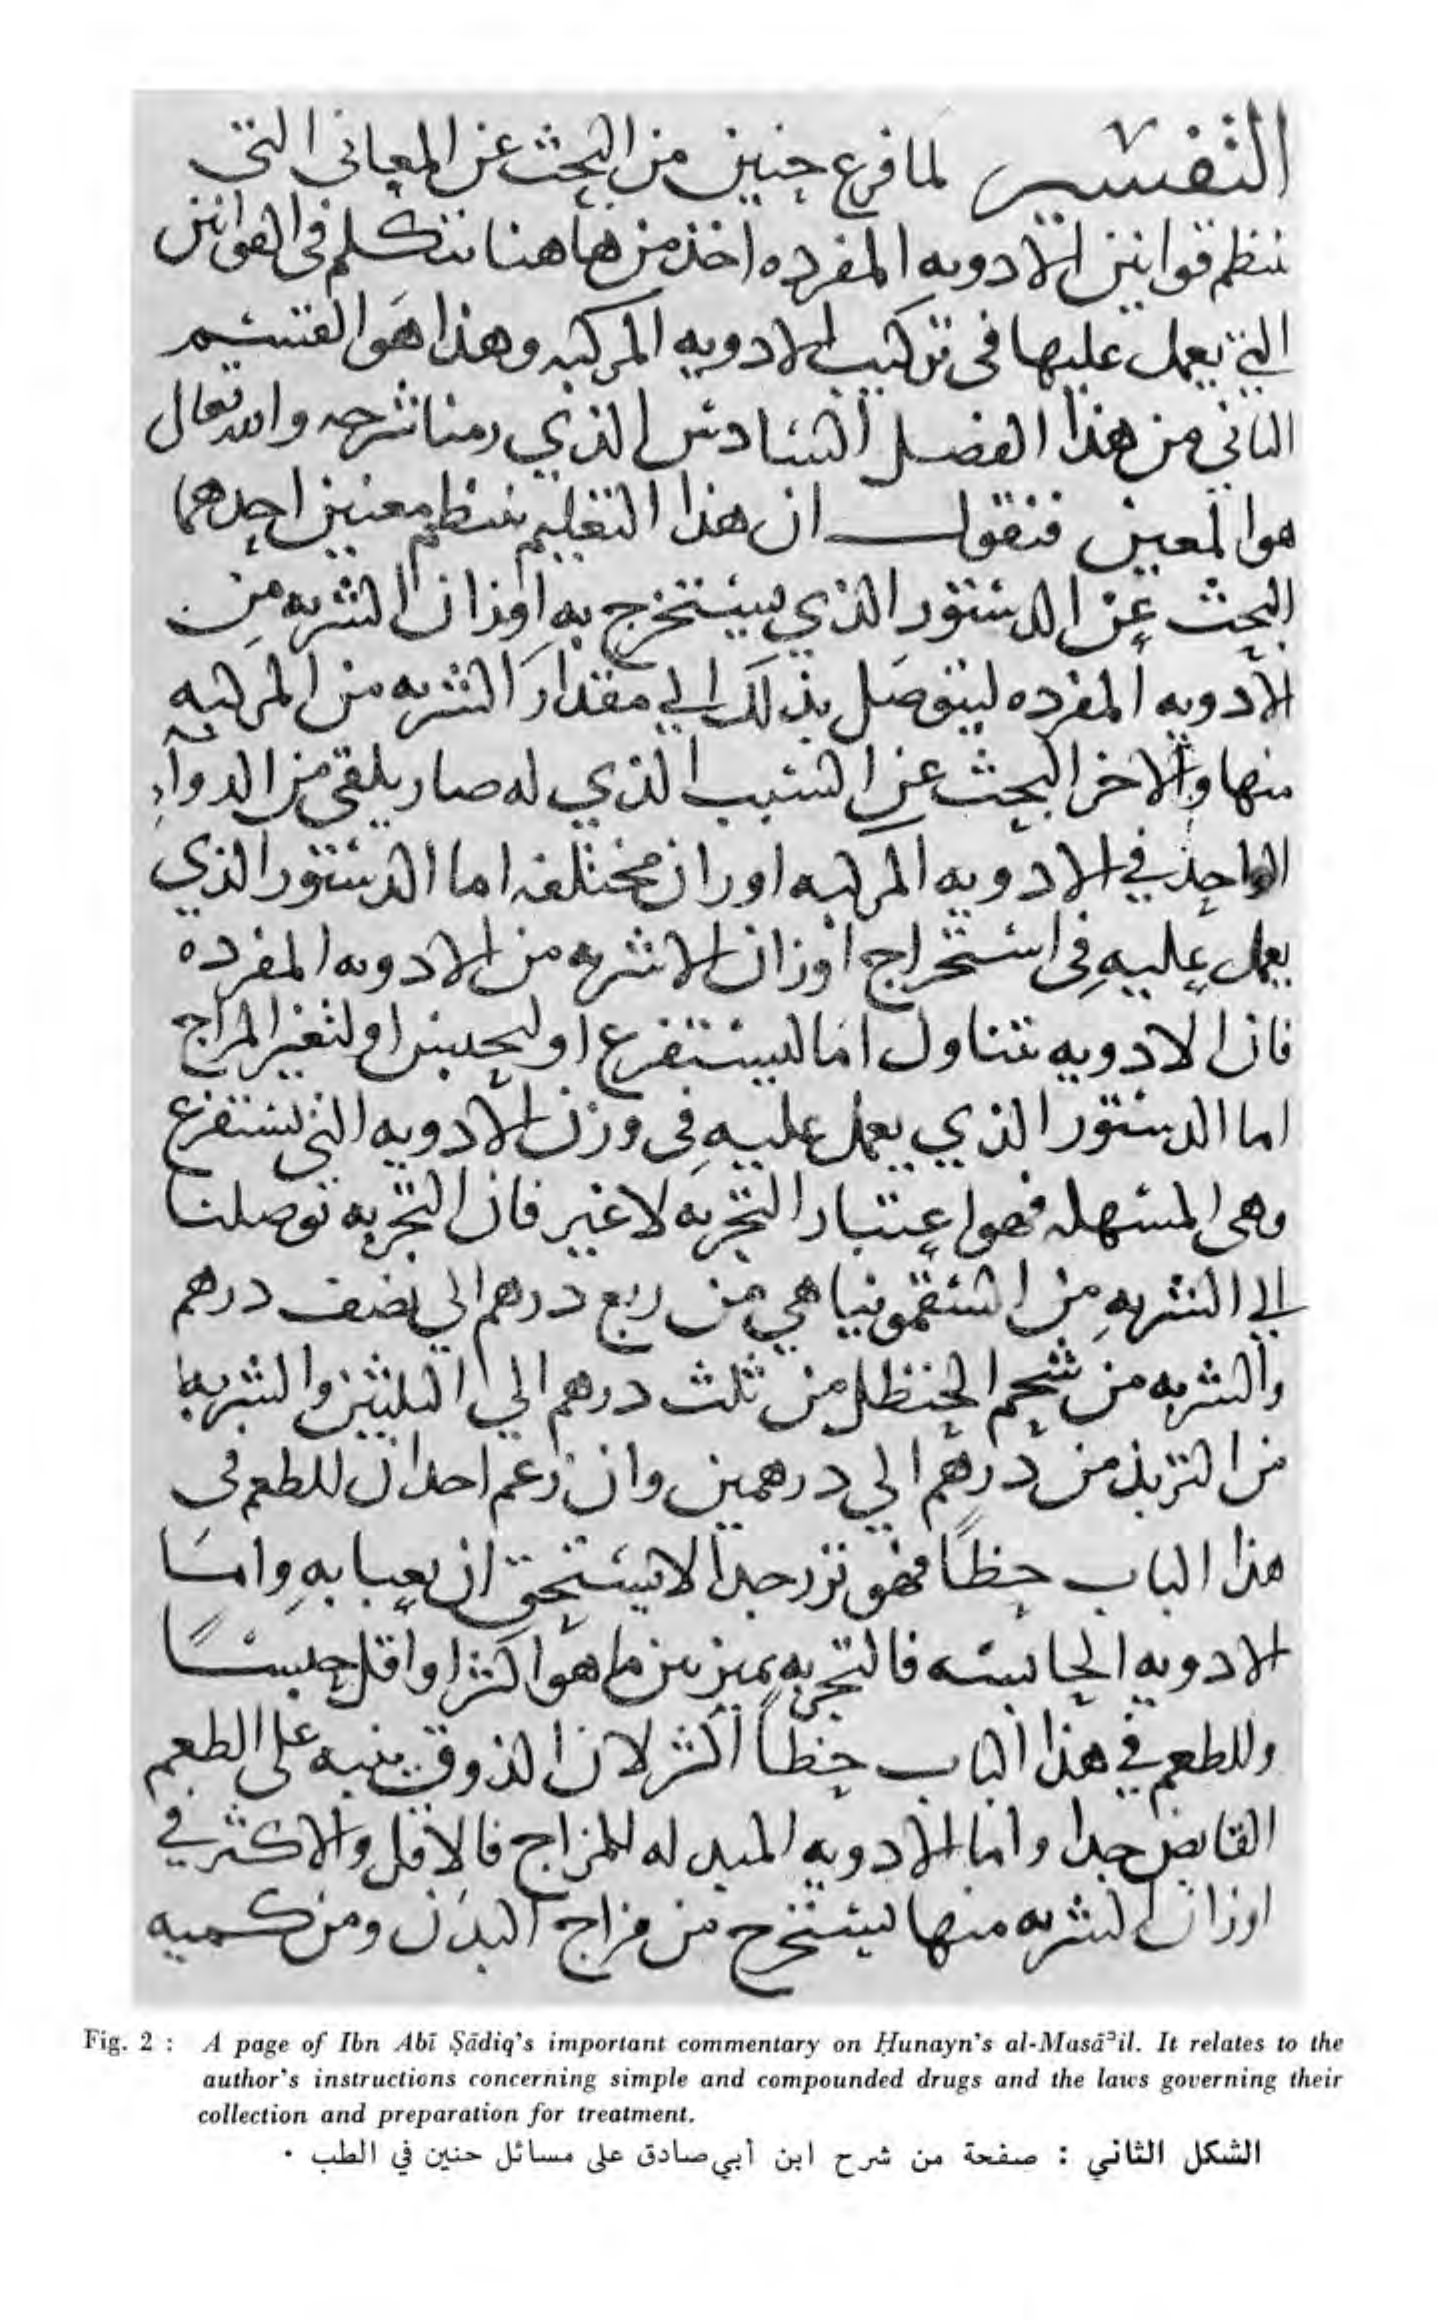 التفسير لما فرغ حنين من البحث عن المعاني التي
تنظم قوانين الادويه المفرده اخذ من هاهنا يتكلم في القوانين
التي يعمل عليها في تركيب الادويه المركبه وهذا هو القسم
الثاني من هذا الفصل السادس الذي رمنا شرحه والله تعالى
هو المعين فنقول ان هذا التعليم ينتظم معنيين احدهما
البحث عن الدستور الذي يستخرج به اوزان الشربه من
الادويه المفرده ليتوصل بذلك الي مقدار الشربه من المركبه
منها والاخر البحث عن السبب الذي له صار يلقى من الدواء
الواحد في الادويه المركبه اوزان مختلفه اما الدستور الذي
يعمل عليه في استخراج اوزان الاشربه من الادويه المفردة
فان الادويه تتناول اما ليستفرغ او ليحبس او لتغير المزاج
اما الدستور الذي يعمل عليه في وزن الادويه التي تستفرغ
وهي المسهله فهو اعتبار التجربه لا غير فان التجربه توصلنا
الي الشربه من السقمونيا هي من ربع درهم الي نصف درهم
والشربه من شحم الحنظل من ثلث درهم الي الثلثين والشربه
من التربذ من درهم الي درهمين وان زعم احد ان للطعم في
هذا الباب حظا فهو نزر جدا لا يستحق ان يعبا به واما
الادويه الحابسه فالتجربه تميز بين ما هو اكثر او اقل حبسا
وللطعم في هذا الباب حظا اكثر لان الذوق ينبه على الطعم
القابض جدا واما الادويه المبدله للمزاج فالاقل والاكثر في
اوزان الشربه منها يستخرج من مزاج البدن ومن كميه
Fig. 2 : A page of Ibn Abī Ṣādiq's important commentary on Ḥunayn's al-Masāʾil. It relates to the
author's instructions concerning simple and compounded drugs and the laws governing their
collection and preparation for treatment.
الشكل الثاني : صفحة من شرح ابن أبي صادق على مسائل حنين في الطب .